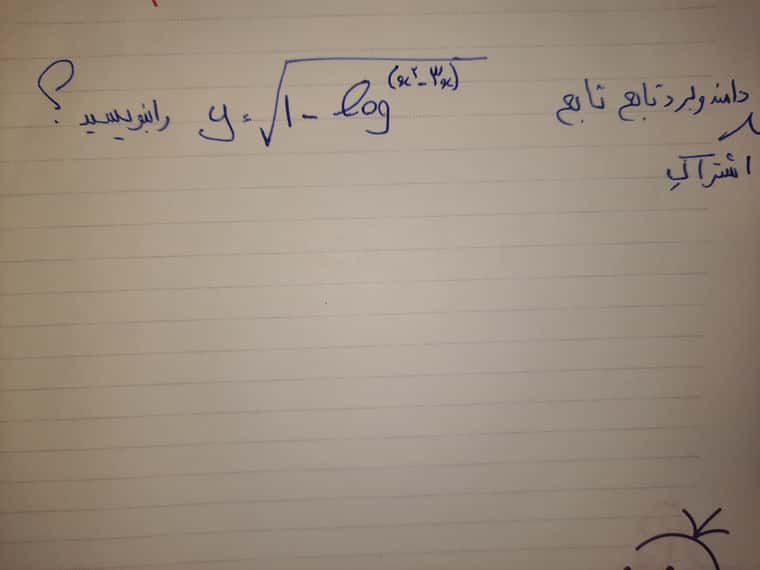 دامنه و برد تابع تابع y = √1 - log(x² - ۳x) را بنویسید ؟
اشتراک